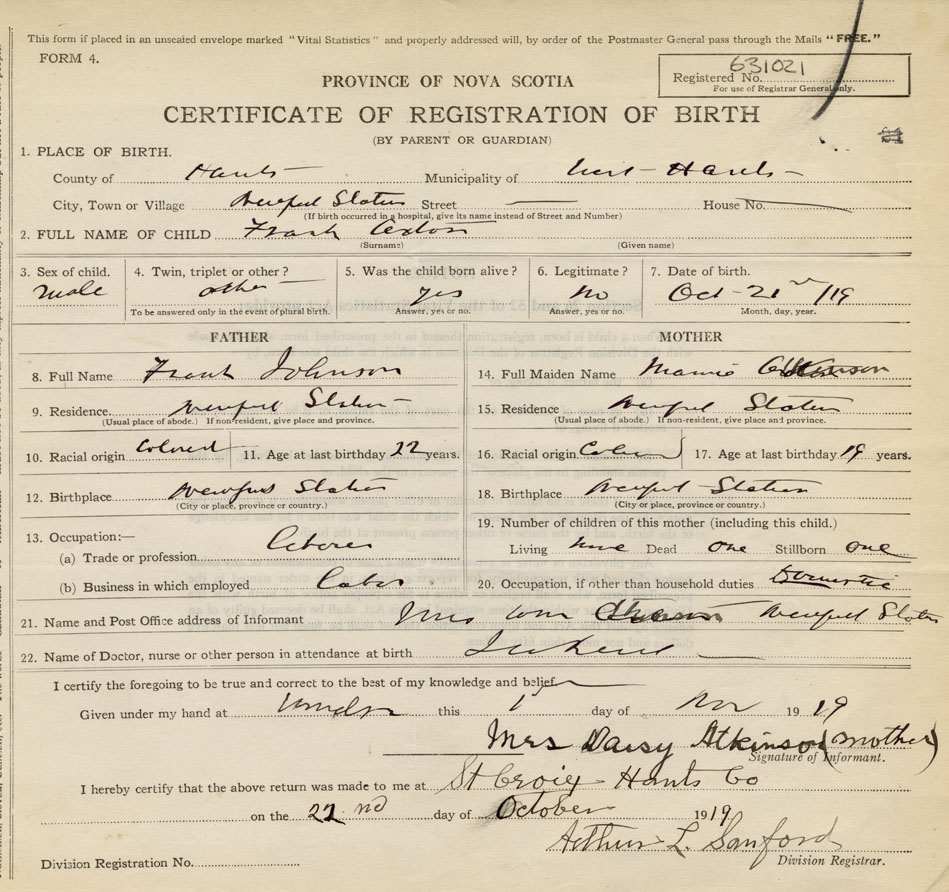 This form if placed in an unsealed envelope marked "Vital Statistics" and properly addressed will, by order of the Postmaster General pass through the Mails "FREE."
FORM 4.
631021
Registered No.
For use of Registrar General only.
PROVINCE OF NOVA SCOTIA
CERTIFICATE OF REGISTRATION OF BIRTH
(BY PARENT OR GUARDIAN)
1. PLACE OF BIRTH.
County of Hants Municipality of West Hants
City, Town or Village Street House No.
(If birth occurred in a hospital, give its name instead of Street and Number)
2. FULL NAME OF CHILD Frank
(Surname) (Given name)
3. Sex of child. 4. Twin, triplet or other? 5. Was the child born alive? 6. Legitimate? 7. Date of birth.
male other yes no Oct 21 /19
To be answered only in the event of plural birth. Answer, yes or no. Answer, yes or no. Month, day, year.
FATHER MOTHER
8. Full Name Frank Johnson 14. Full Maiden Name Mamie Atkinson
9. Residence. Station 15. Residence Station
(Usual place of abode.) If non-resident, give place and province. (Usual place of abode.) If non-resident, give place and province.
10. Racial origin Colored 11. Age at last birthday 22 years. 16. Racial origin 17. Age at last birthday 19 years.
12. Birthplace Station 18. Birthplace Station
(City or place, province or country.) (City or place, province or country.)
19. Number of children of this mother (including this child.)
13. Occupation:— Laborer
Living Dead one Stillborn one
(a) Trade or profession
(b) Business in which employed Labor 20. Occupation, if other than household duties Domestic
21. Name and Post Office address of Informant Mrs Wm Atkinson
22. Name of Doctor, nurse or other person in attendance at birth.
I certify the foregoing to be true and correct to the best of my knowledge and belief.
Given under my hand at Windsor this 1 day of Nov 1919
Mrs Daisy Atkinson (mother)
Signature of Informant.
I hereby certify that the above return was made to me at St Croix Hants Co
on the 22nd day of October 1919
Arthur L. Sanford
Division Registration No. Division Registrar.